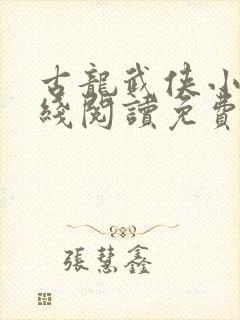 古龍武俠小
綫閱讀免費
張慧鑫